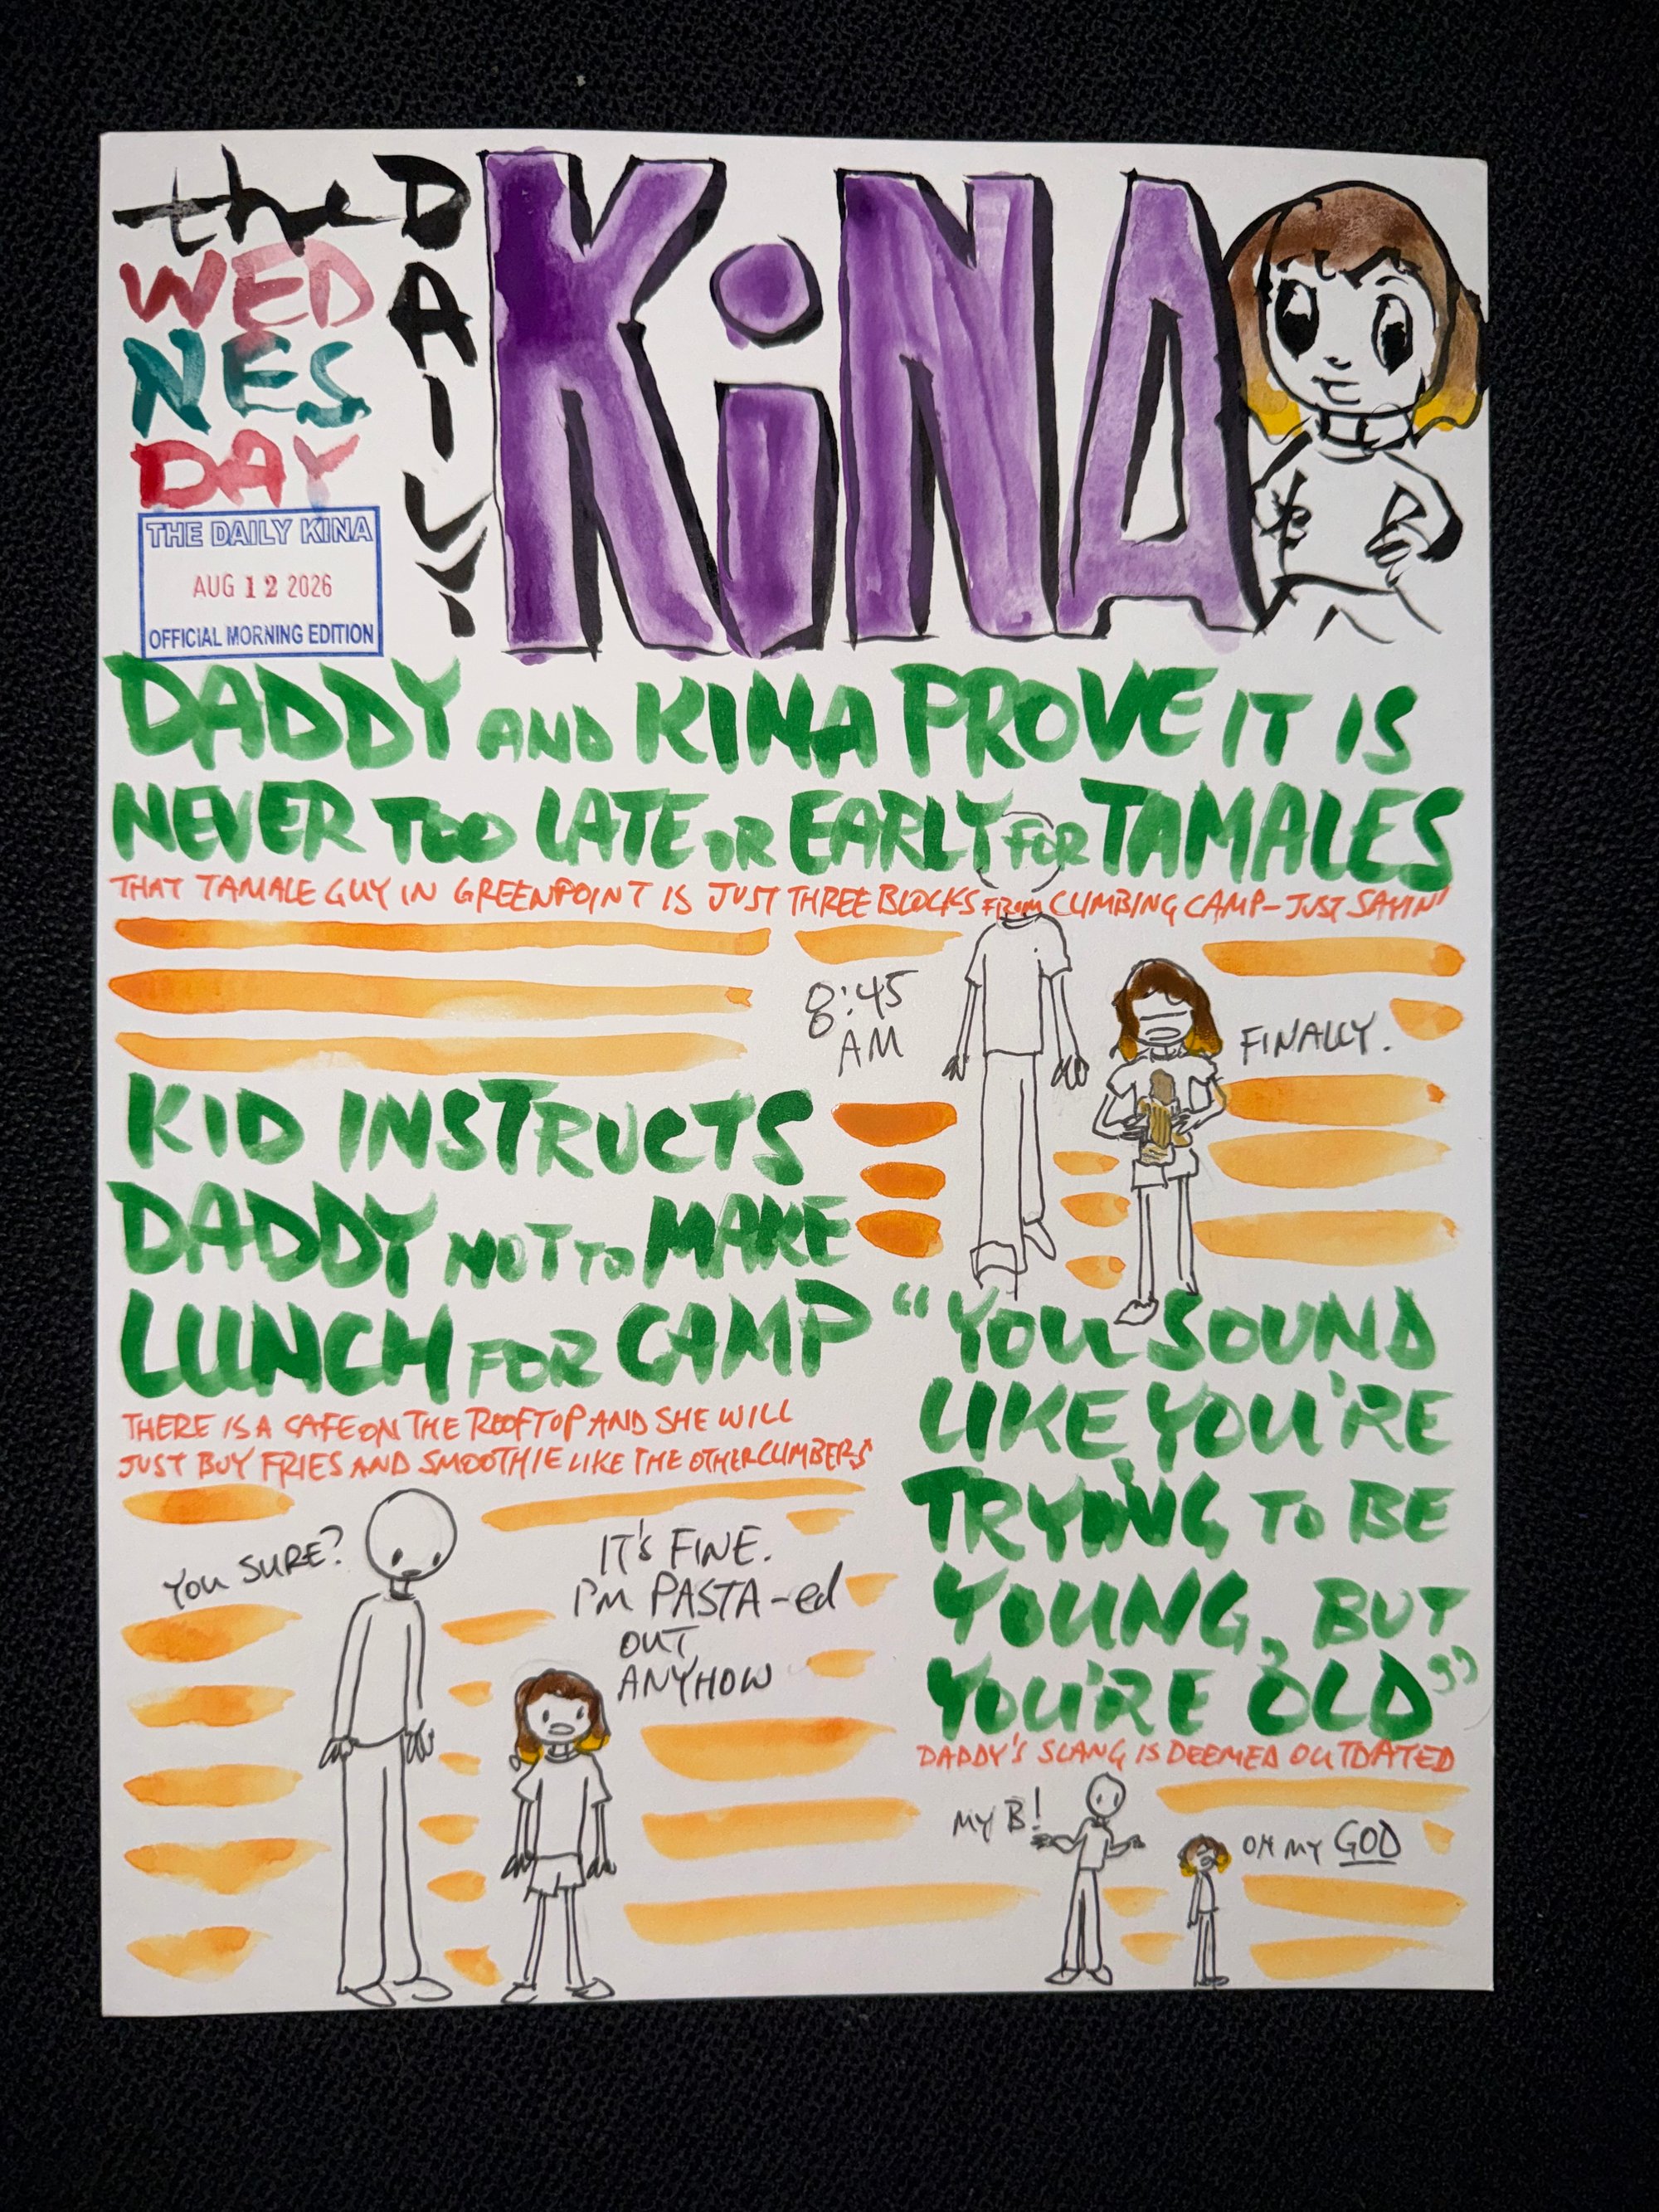 the
DAILY
KiNA
WED
NES
DAY
THE DAILY KINA
AUG 12 2026
OFFICIAL MORNING EDITION
DADDY AND KINA PROVE IT IS
NEVER TOO LATE OR EARLY FOR TAMALES
THAT TAMALE GUY IN GREENPOINT IS JUST THREE BLOCKS FROM CLIMBING CAMP - JUST SAYIN'
8:45
AM
FINALLY.
KID INSTRUCTS
DADDY NOT TO MAKE
LUNCH FOR CAMP
THERE IS A CAFE ON THE ROOFTOP AND SHE WILL
JUST BUY FRIES AND SMOOTHIE LIKE THE OTHER CLIMBERS
YOU SURE?
IT'S FINE.
I'M PASTA-ed
OUT
ANYHOW
"YOU SOUND
LIKE YOU'RE
TRYING TO BE
YOUNG, BUT
YOU'RE OLD"
DADDY'S SLANG IS DEEMED OUTDATED
MY B!
OH MY GOD